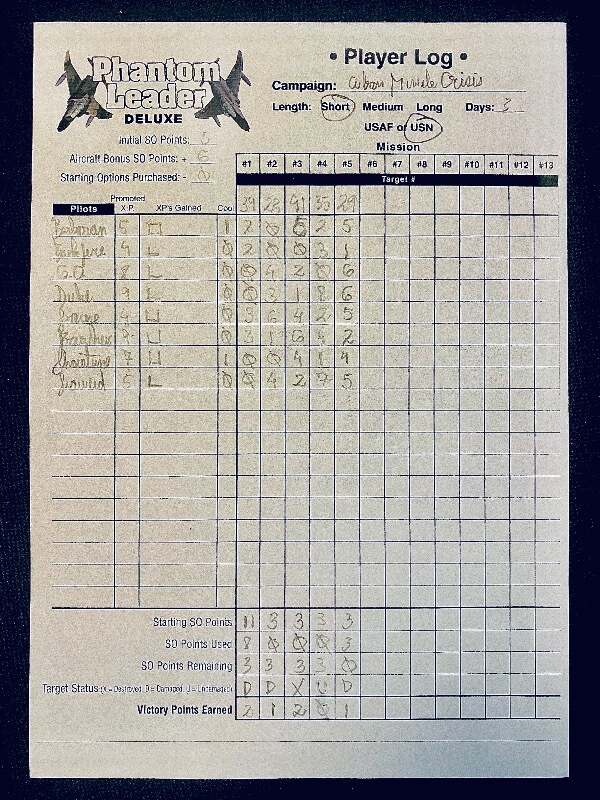 Phantom
Leader
DELUXE
• Player Log •
Campaign: Cuban Missile Crisis
Length: Short Medium Long Days: 3
USAF or USN
Initial SO Points: 5
Aircraft Bonus SO Points: + 6
Starting Options Purchased: - 0
Mission
#1 #2 #3 #4 #5 #6 #7 #8 #9 #10 #11 #12 #13
Target #
39 28 41 35 29
Pilots Promoted X.P. XP's Gained Cool
5 1 2 0 5 2 5
4 0 2 0 0 3 1
8 0 0 4 2 0 6
Duke 9 0 0 3 1 8 6
4 0 3 6 4 2 5
0 3 1 6 4 2
7 1 0 0 4 1 4
5 0 0 4 2 7 5
Starting SO Points 11 3 3 3 3
SO Points Used 8 0 0 0 3
SO Points Remaining 3 3 3 3 0
Target Status (X = Destroyed, D = Damaged, U = Undamaged) D D X U D
Victory Points Earned 2 1 2 0 1